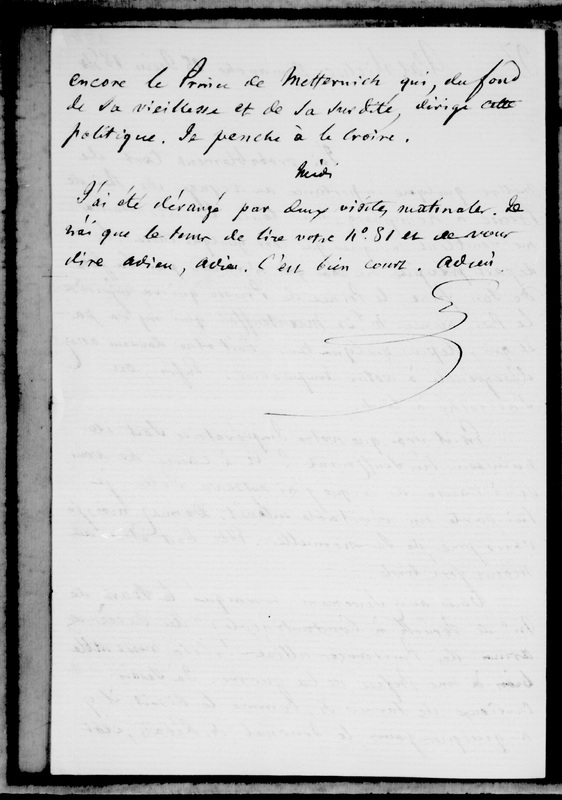 encore le Prince de Metternich qui, du fond
de sa vieillesse et de sa surdité, dirige cette
politique. Je penche à le croire.
Midi
J'ai été dérangé par deux visites matinales. Je
n'ai que le tems de lire votre N°. 51 et de vous
dire adieu, adieu. C'est bien court. adieu